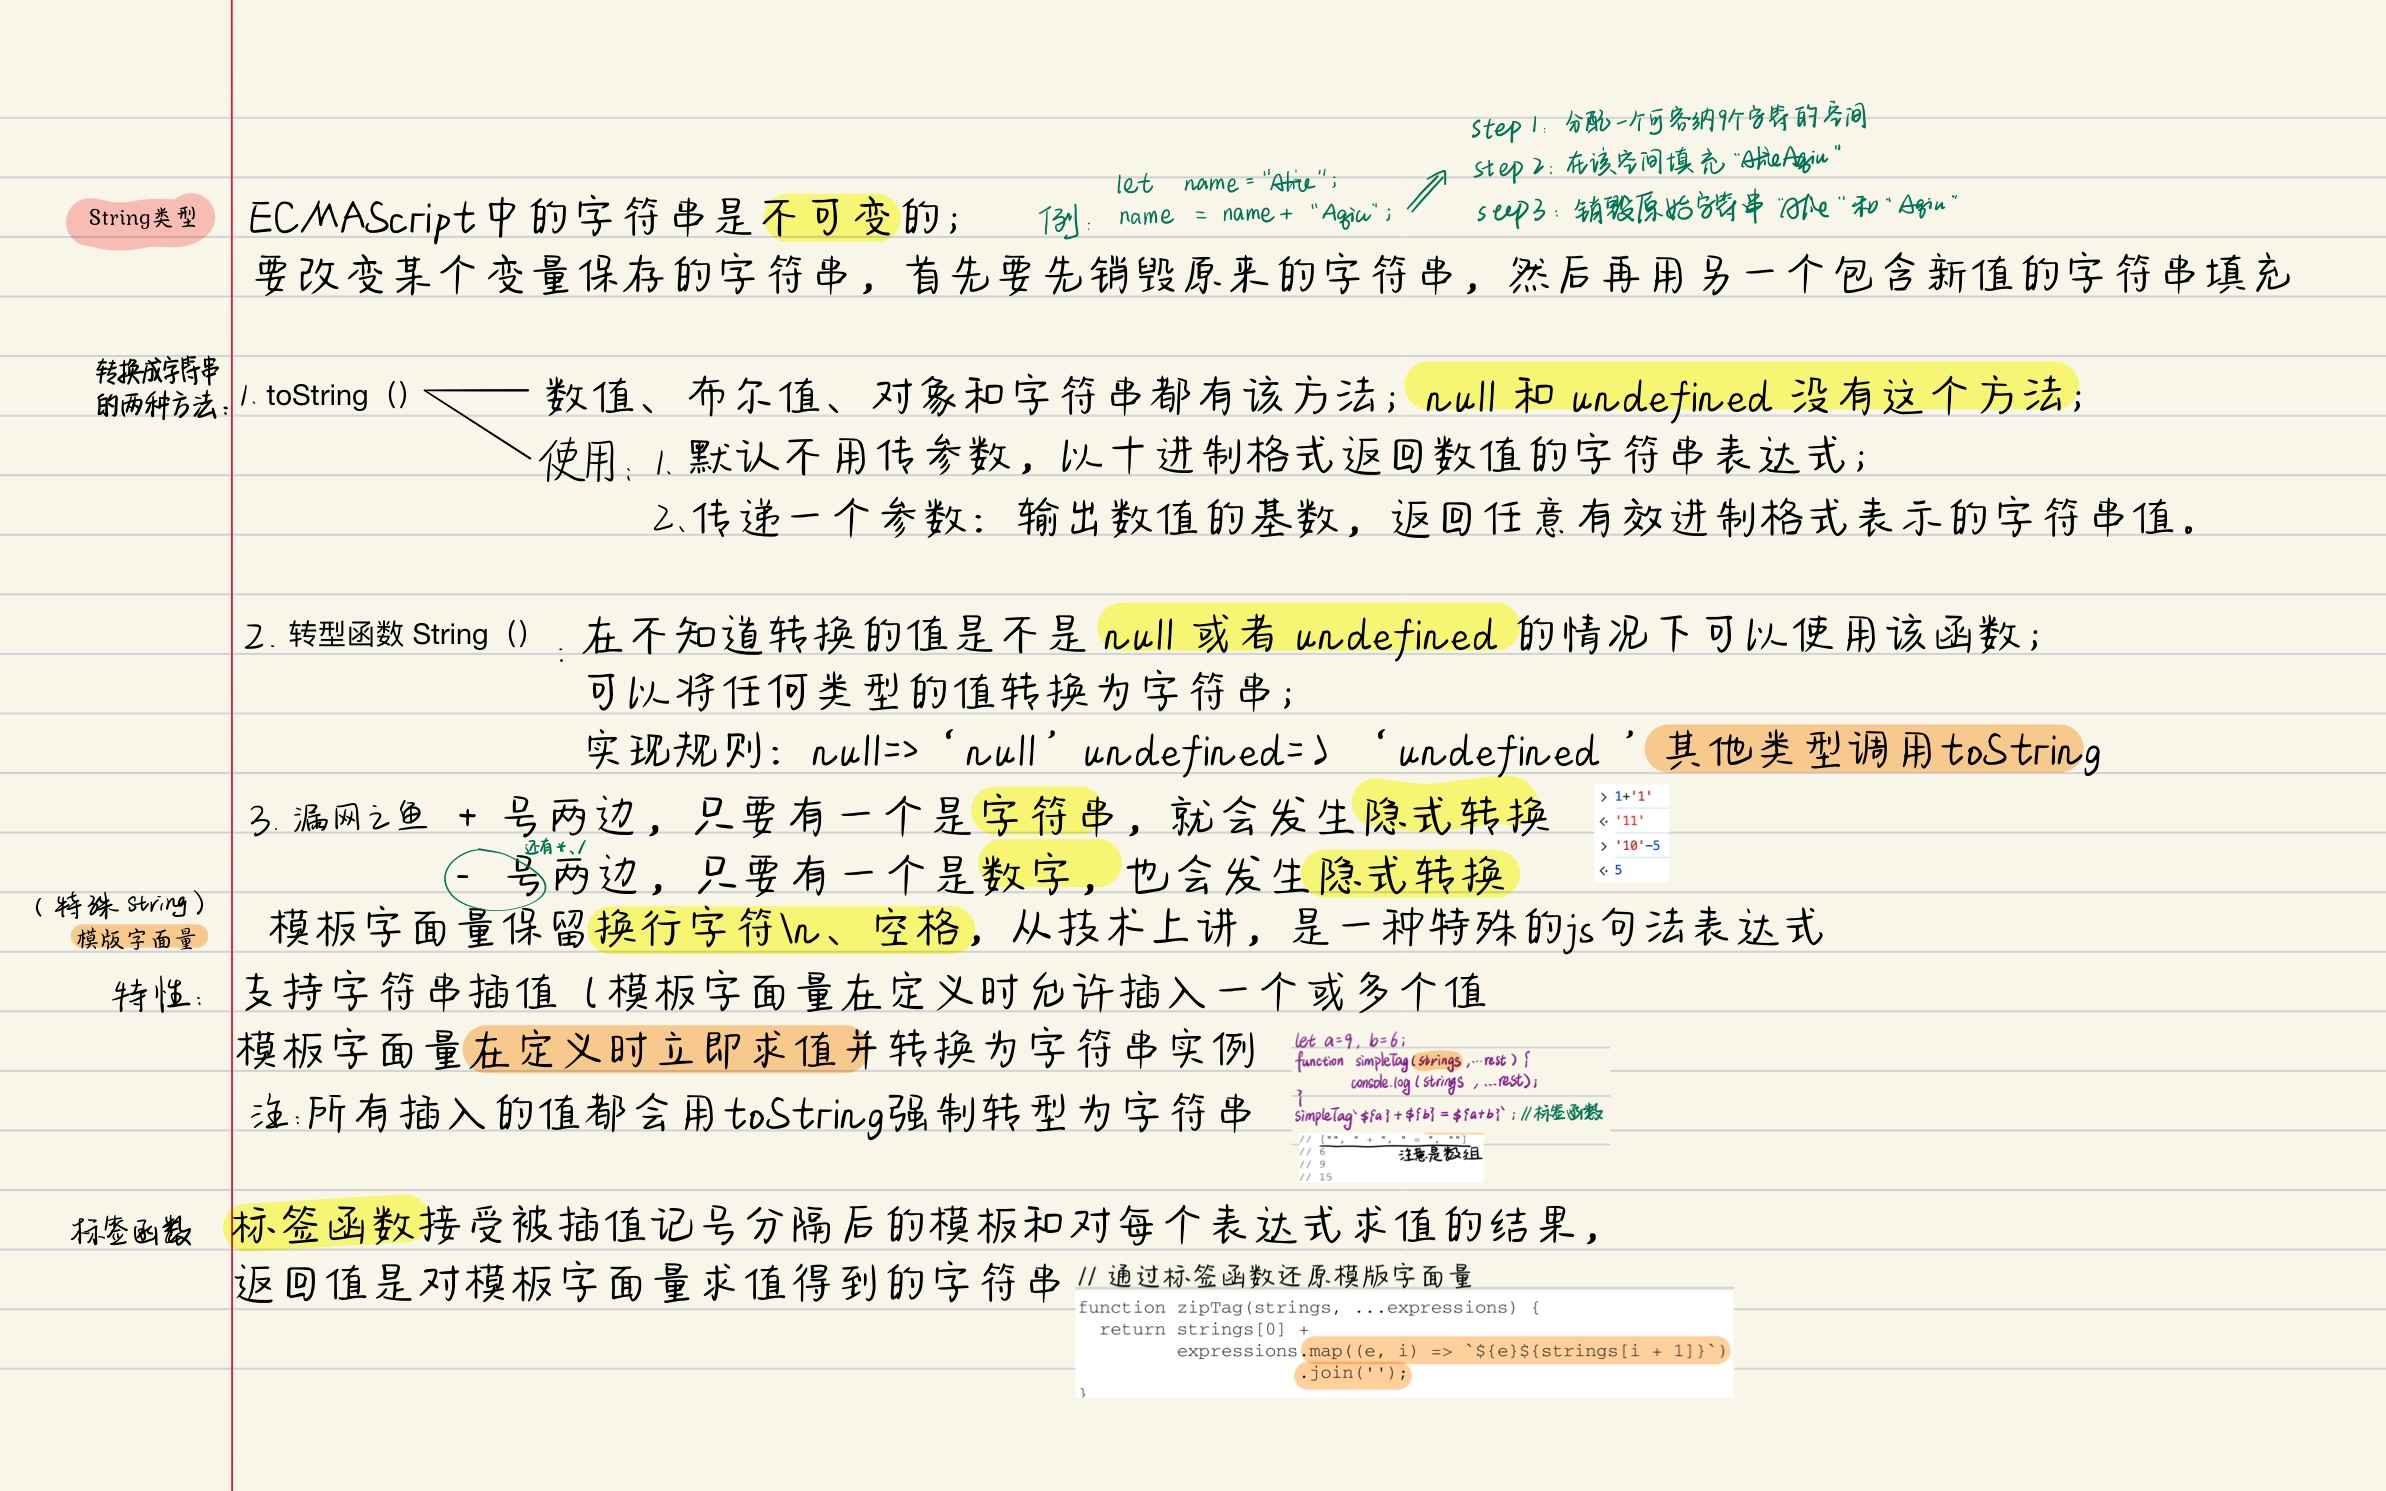 step 1: 分配一个可容纳9个字符的空间
let name = "Alice"; step 2: 在该空间填充 "AliceAqiu"
例: name = name + "Aqiu"; step3: 销毁原始字符串 "Alice" 和 "Aqiu"
String类型 ECMAScript中的字符串是不可变的;
要改变某个变量保存的字符串，首先要先销毁原来的字符串，然后再用另一个包含新值的字符串填充
转换成字符串
的两种方法: 1. toString（） 数值、布尔值、对象和字符串都有该方法; null 和 undefined 没有这个方法;
使用: 1. 默认不用传参数，以十进制格式返回数值的字符串表达式;
2、传递一个参数: 输出数值的基数，返回任意有效进制格式表示的字符串值.
2. 转型函数 String（） : 在不知道转换的值是不是 null 或者 undefined 的情况下可以使用该函数;
可以将任何类型的值转换为字符串;
实现规则: null=> ‘null’ undefined=> ‘undefined ’ 其他类型调用toString
3. 漏网之鱼 + 号两边，只要有一个是字符串，就会发生隐式转换
> 1+'1'
<· '11'
> '10'-5
<· 5
还有*、/
- 号两边，只要有一个是数字，也会发生隐式转换
(特殊String)
模版字面量 模板字面量保留换行字符\n、空格，从技术上讲，是一种特殊的js句法表达式
特性: 支持字符串插值（模板字面量在定义时允许插入一个或多个值
模板字面量在定义时立即求值并转换为字符串实例
注:所有插入的值都会用toString强制转型为字符串
let a=9, b=6;
function simpleTag(strings,...rest) {
console.log(strings, ...rest);
}
simpleTag`${a}+${b}=${a+b}`; //标签函数
// ["", " + ", " = ", ""]
// 6 注意是数组
// 9
// 15
标签函数 标签函数接受被插值记号分隔后的模板和对每个表达式求值的结果，
返回值是对模板字面量求值得到的字符串
// 通过标签函数还原模版字面量
function zipTag(strings, ...expressions) {
return strings[0] +
expressions.map((e, i) => `${e}${strings[i + 1]}`)
.join('');
}